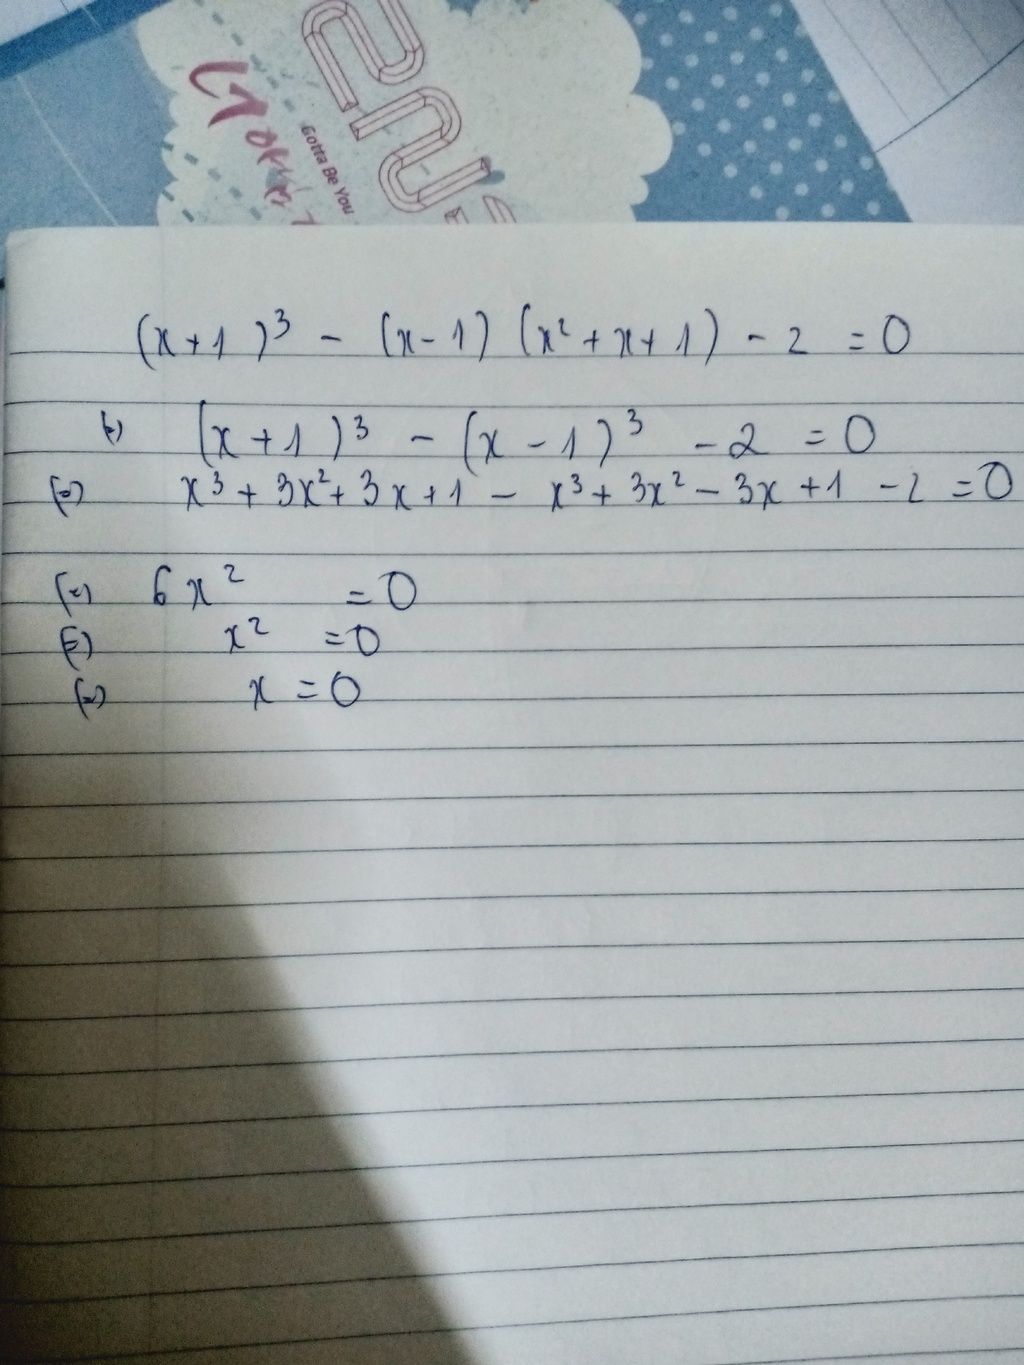 2NE
Gotta Be You
(x+1)³ - (x-1)(x²+x+1) - 2 = 0
(=) (x+1)³ - (x-1)³ - 2 = 0
(=) x³ + 3x² + 3x + 1 - x³ + 3x² - 3x + 1 - 2 = 0
(=) 6x² = 0
(=) x² = 0
(=) x = 0